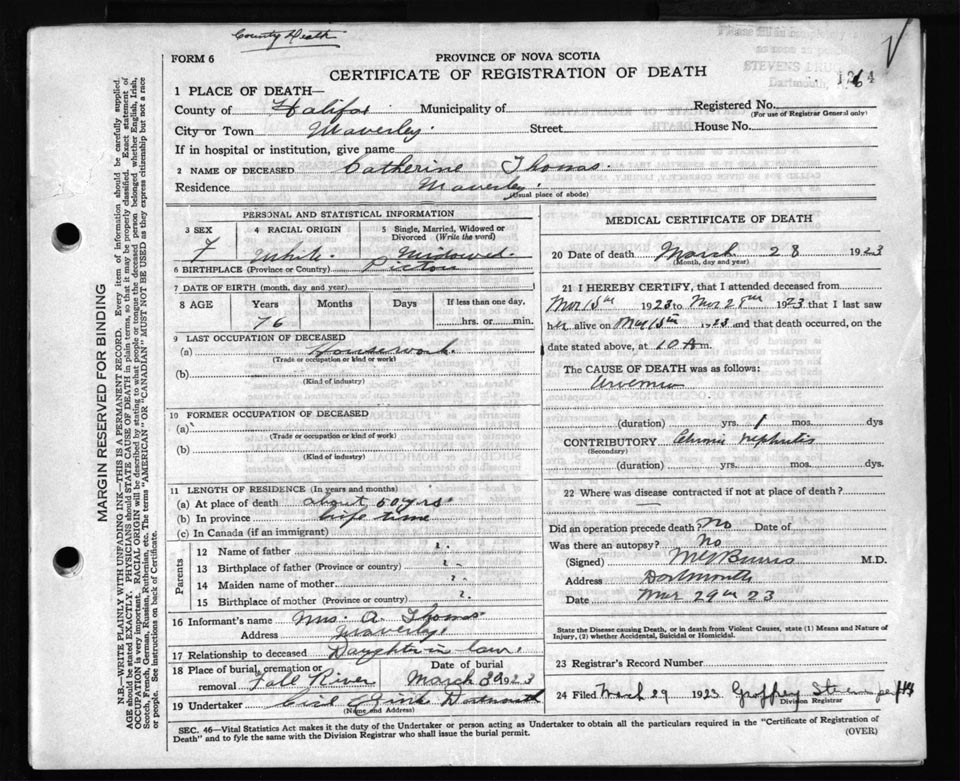 County Death
FORM 6
PROVINCE OF NOVA SCOTIA
CERTIFICATE OF REGISTRATION OF DEATH
STEVENS
Dartmouth,
1 PLACE OF DEATH—
County of Halifax Municipality of Registered No.
(For use of Registrar General only)
City or Town Waverley. Street House No.
If in hospital or institution, give name
2 NAME OF DECEASED Catherine Thomas.
Residence Waverley.
(Usual place of abode)
PERSONAL AND STATISTICAL INFORMATION
3 SEX 4 RACIAL ORIGIN 5 Single, Married, Widowed or Divorced (Write the word)
F White. Widowed.
6 BIRTHPLACE (Province or Country) Pictou
7 DATE OF BIRTH (month, day and year)
8 AGE Years Months Days If less than one day,
76 hrs. or min.
9 LAST OCCUPATION OF DECEASED
(a) Housework.
(Trade or occupation or kind or work)
(b)
(Kind of industry)
10 FORMER OCCUPATION OF DECEASED
(a)
(Trade or occupation or kind of work)
(b)
(Kind of industry)
11 LENGTH OF RESIDENCE (In years and months)
(a) At place of death about 50 yrs
(b) In province life time
(c) In Canada (if an immigrant)
Parents
12 Name of father ?.
13 Birthplace of father (Province or country) ?.
14 Maiden name of mother ?.
15 Birthplace of mother (Province or country) ?.
16 Informant's name Mrs. A. Thomas
Address Waverley.
17 Relationship to deceased Daughter in law.
18 Place of burial, cremation or removal Fall River
Date of burial March 30 1923
19 Undertaker Zink Dartmouth
(Name and Address)
MEDICAL CERTIFICATE OF DEATH
20 Date of death March 28 1923
(Month, day and year)
21 I HEREBY CERTIFY, that I attended deceased from
Mar 15th 1923 to Mar 28th 1923 that I last saw
her alive on Mar 15th 1923 and that death occurred, on the
date stated above, at 10 A m.
The CAUSE OF DEATH was as follows:
Uraemia
(duration) yrs. 1 mos. dys
CONTRIBUTORY Chronic Nephritis
(Secondary)
(duration) yrs. mos. dys.
22 Where was disease contracted if not at place of death?
Did an operation precede death? No Date of
Was there an autopsy? No
(Signed) Burris M.D.
Address Dartmouth
Date Mar 29th 23
State the Disease causing Death, or in death from Violent Causes, state (1) Means and Nature of
Injury, (2) whether Accidental, Suicidal or Homicidal.
23 Registrar's Record Number
24 Filed March 29 1923 Geoffrey Stevens per
Division Registrar
SEC. 46—Vital Statistics Act makes it the duty of the Undertaker or person acting as Undertaker to obtain all the particulars required in the "Certificate of Registration of
Death" and to fyle the same with the Division Registrar who shall issue the burial permit.
(OVER)
MARGIN RESERVED FOR BINDING
N.B.—WRITE PLAINLY WITH UNFADING INK—THIS IS A PERMANENT RECORD. Every item of information should be carefully supplied.
AGE should be stated EXACTLY. PHYSICIANS should STATE CAUSE OF DEATH in plain terms, so that it may be properly classified. Exact statement of
OCCUPATION is very important. RACIAL ORIGIN will be described by stating to what people or tongue the deceased person belonged whether English, Irish,
Scotch, French, German, Russian, Ruthenian, etc. The terms "AMERICAN" OR "CANADIAN" MUST NOT BE USED as they express citizenship but not a race
or people. See instructions on back of Certificate.